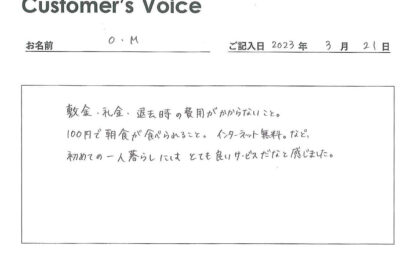 Customer's Voice
お名前 O・M ご記入日 2023 年 3 月 21 日
敷金・礼金・退去時の費用がかからないこと。
100円で朝食が食べられること。インターネット無料。など、
初めての一人暮らしにしは とても良いサービスだなと感じました。